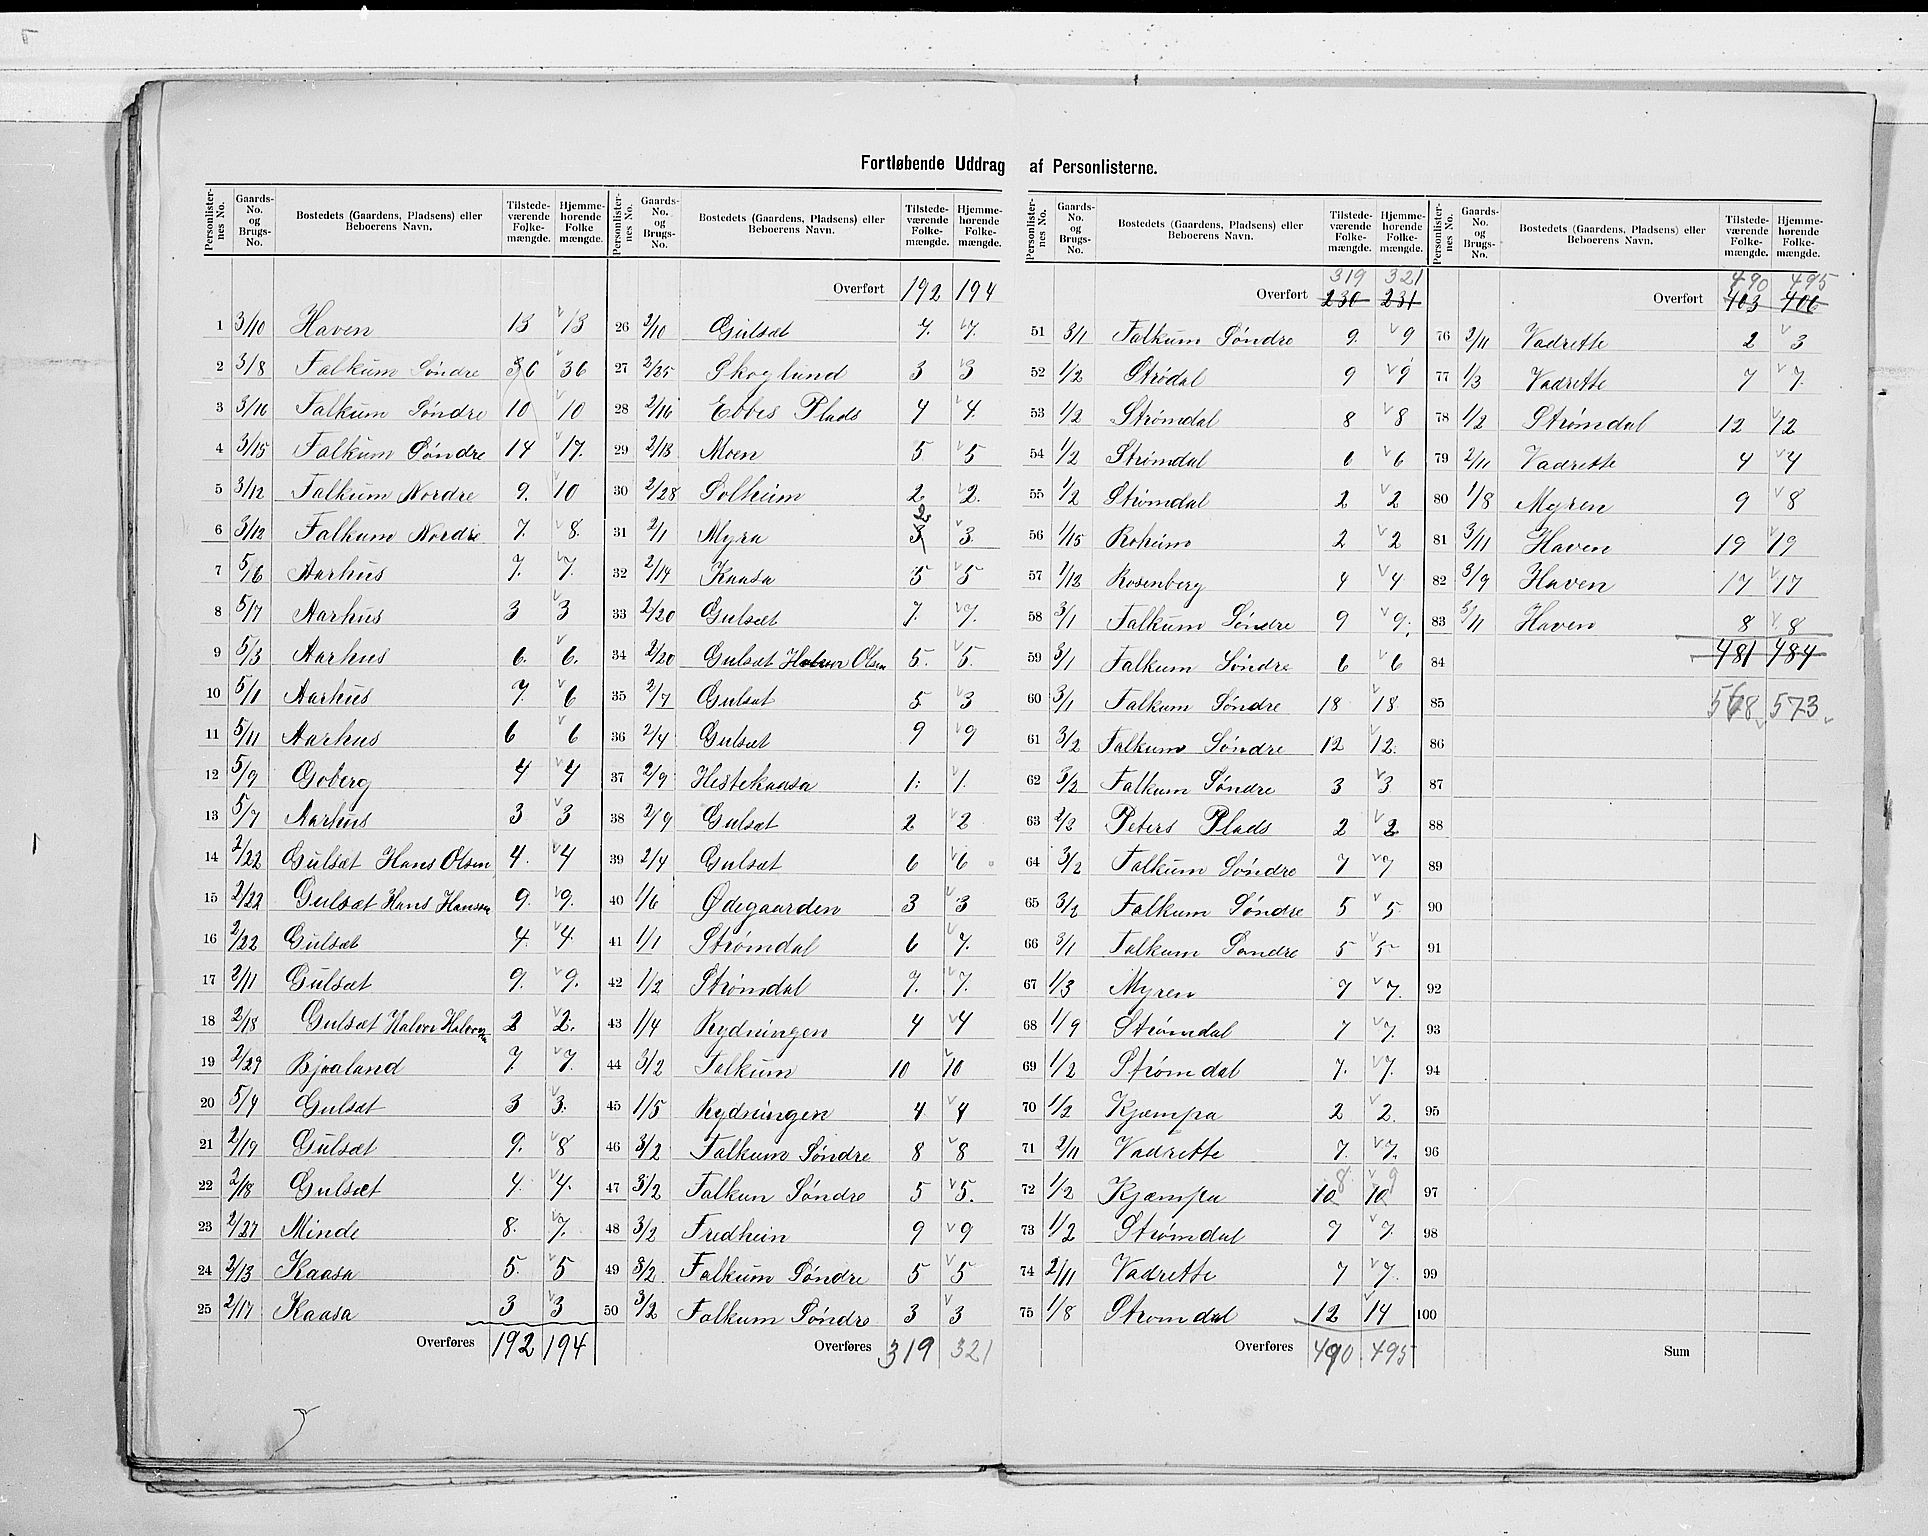 Fortløbende Uddrag af Personlisterne.
Personlister-nes No. | Gaards-No. og Brugs-No. | Bostedets (Gaardens, Pladsens) eller Beboerens Navn. | Tilstede-værende Folke-mængde. | Hjemme-hørende Folke mængde.
1 3/10 Haven 13 13
2 3/8 Falkum Søndre 36 36
3 3/16 Falkum Søndre 10 10
4 3/15 Falkum Søndre 14 17.
5 3/12 Falkum Nordre 9. 10
6 3/12 Falkum Nordre 7. 8.
7 5/6 Aarhus 7. 7.
8 5/7 Aarhus 3 3
9 5/3 Aarhus 6. 6.
10 5/1 Aarhus 7. 6
11 5/11 Aarhus 6 6
12 5/9 Goberg 4 4
13 5/7 Aarhus 3 3
14 2/22 Gulsæt Hans Olsen 4. 4
15 2/22 Gulsæt Hans Hansen 9. 9.
16 2/22 Gulsæt 4. 4.
17 2/11 Gulsæt 9. 9.
18 2/18 Gulsæt Halvor Halvorsen 2 2.
19 2/29 Bjaaland 7. 7.
20 5/4 Gulsæt 3 3.
21 2/19 Gulsæt 9. 8
22 2/18 Gulsæt 4. 4.
23 2/27 Minde 8. 7.
24 2/13 Kaasa 5. 5
25 2/17 Kaasa 3 3
Overføres 192 194
Personlister-nes No. | Gaards-No. og Brugs-No. | Bostedets (Gaardens, Pladsens) eller Beboerens Navn. | Tilstede-værende Folke-mængde. | Hjemme-hørende Folke-mængde.
Overført 192 194
26 2/10 Gulsæt 7. 7.
27 2/25 Skoglund 3 3
28 2/16 Ebbes Plads 4 4.
29 2/13 Moen 5 5
30 2/28 Solheim 2 2.
31 2/1 Myra 3 2 3.
32 2/14 Kaasa 5 5
33 2/20 Gulsæt 7. 7.
34 2/20 Gulsæt Halvor Olsen 5. 5.
35 2/7 Gulsæt 5 3
36 2/4 Gulsæt 9 9
37 2/9 Hestekaasa 1. 1.
38 2/9 Gulsæt 2 2
39 2/4 Gulsæt 6 6
40 1/6 Ødegaarden 3 3
41 1/1 Strømdal 6 7.
42 1/2 Strømdal 7. 7.
43 1/4 Rydningen 4 4
44 3/2 Falkum 10 10
45 1/5 Rydningen 4 4
46 3/2 Falkum Søndre 8 8
47 3/2 Falkun Søndre 5 5.
48 3/2 Fredhein 9 9
49 3/2 Falkum Søndre 5 5
50 3/2 Falkum Søndre 3 3
Overføres 319 321
Personlister-nes No. | Gaards-No. og Brugs-No. | Bostedets (Gaardens, Pladsens) eller Beboerens Navn. | Tilstede-værende Folke-mængde. | Hjemme-hørende Folke-mængde.
319 321
Overført 230 231
51 3/1 Falkum Søndre 9. 9
52 1/2 Strødal 9 9
53 1/2 Strømdal 8 8
54 1/2 Strømdal 6 6
55 1/2 Strømdal 2 2
56 1/15 Roheim 2 2
57 1/13 Rosenberg 4 4
58 3/1 Falkum Søndre 9 9.
59 3/1 Falkum Søndre 6 6
60 3/1 Falkum Søndre 18 18
61 3/2 Falkum Søndre 12 12.
62 3/2 Falkum Søndre 3 3
63 2/2 Peters Plads 2 2
64 3/2 Falkum Søndre 7 7
65 3/2 Falkum Søndre 5 5
66 3/1 Falkum Søndre 5 5
67 1/3 Myren 7 7.
68 1/9 Strømdal 7 7.
69 1/2 Strømdal 7. 7.
70 1/2 Kjæmpa 2 2.
71 2/11 Vadrette 7. 7.
72 1/2 Kjæmpa 10 8 10 9
73 1/2 Strømdal 7 7.
74 2/11 Vadrette 7 7.
75 1/8 Strømdal 12 14
Overføres 490 495
Personlister-nes No. | Gaards-No. og Brugs-No. | Bostedets (Gaardens, Pladsens) eller Beboerens Navn. | Tilstede-værende Folke-mængde. | Hjemme-hørende Folke-mængde.
490 495
Overført 403 406
76 2/11 Vadrette 2 3
77 1/3 Vadrette 7 7.
78 1/2 Strømdal 12 12
79 2/11 Vadrette 4 4
80 1/8 Myren 9 8
81 3/11 Haven 19 19
82 3/9 Haven 17 17
83 3/11 Haven 8 8
84 481 484
85 568 573
86
87
88
89
90
91
92
93
94
95
96
97
98
99
100
Sum